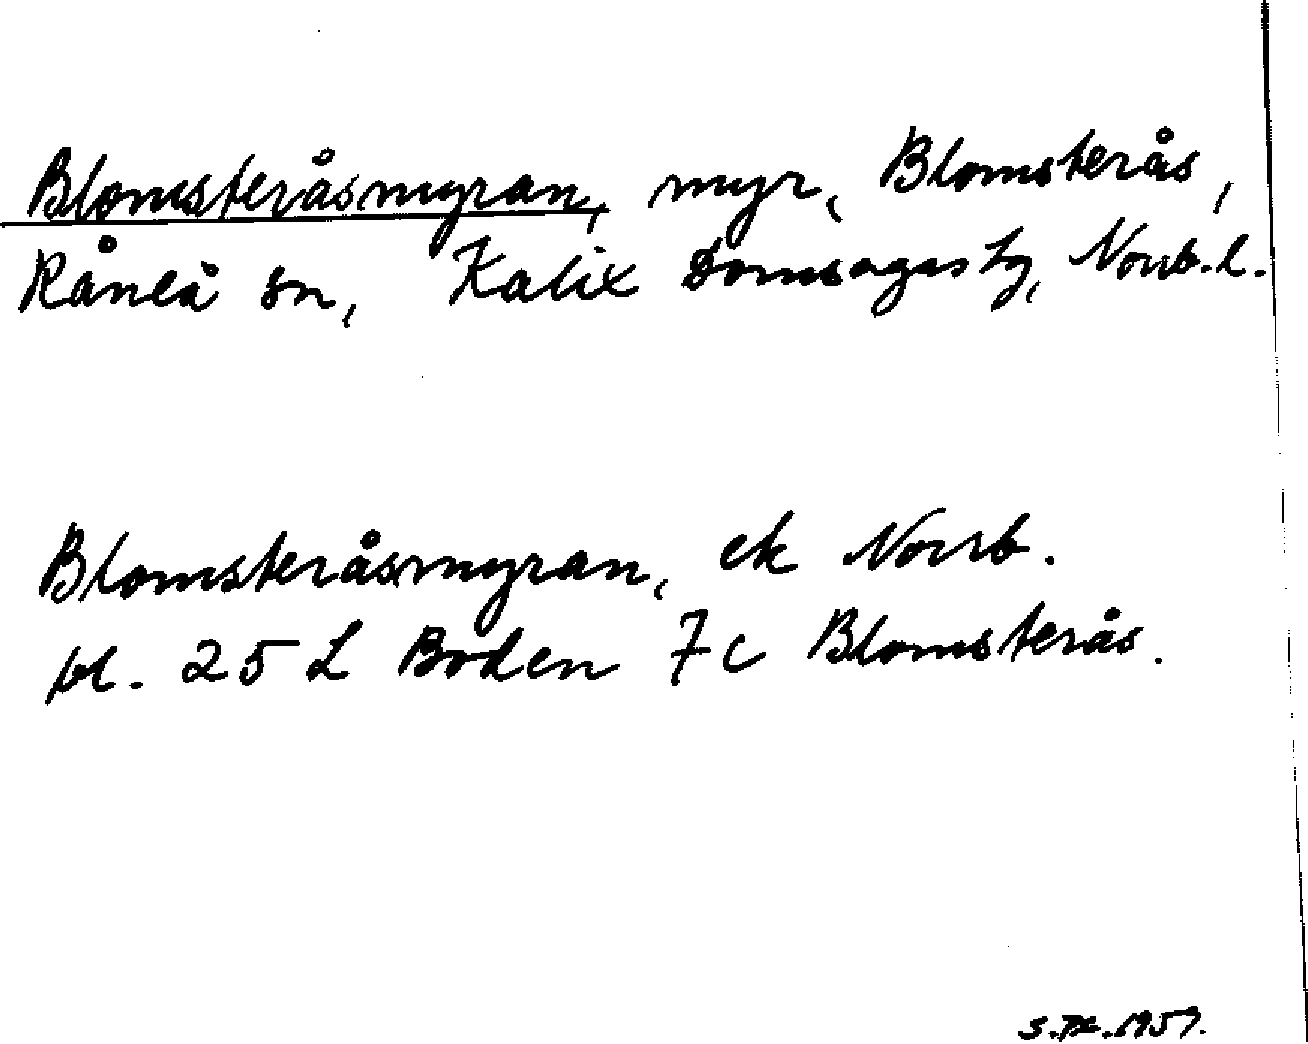 Blomsteråsmyran, myr, Blomsterås,
Råneå sn, Kalix Domsagas tg, Norrb.l.
Blomsteråsmyran, ek Norrb.
bl. 25 L Boden 7 c Blomsterås.
1957.